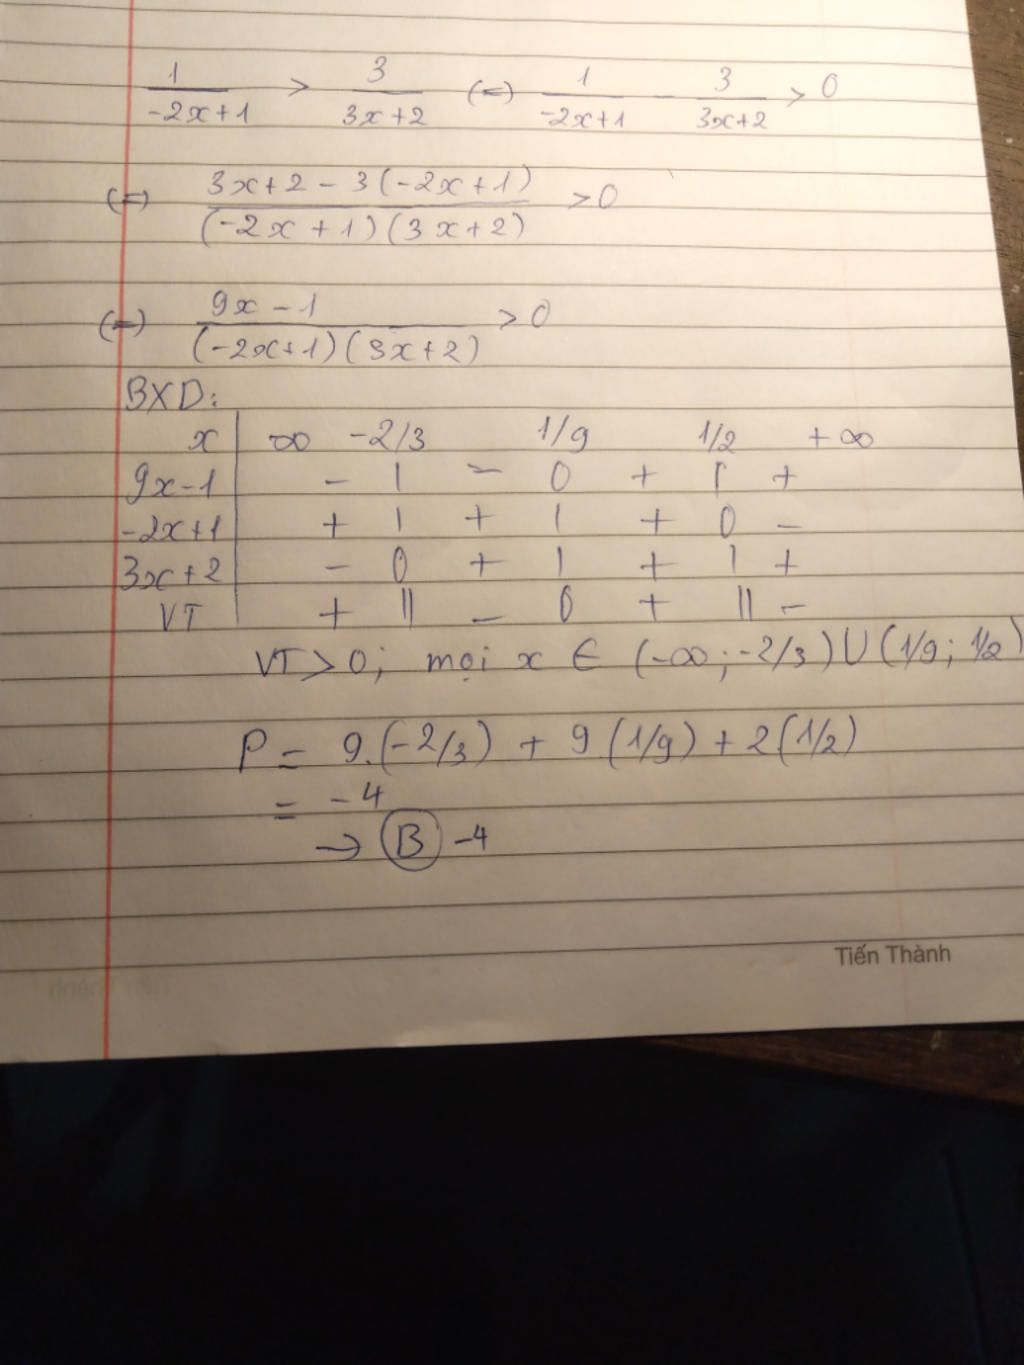 1/(-2x+1) > 3/(3x+2) (=) 1/(-2x+1) - 3/(3x+2) > 0
(=) (3x+2 - 3(-2x+1))/((-2x+1)(3x+2)) > 0
(=) (9x-1)/((-2x+1)(3x+2)) > 0
BXD:
x | ∞ -2/3 1/9 1/2 +∞
9x-1 | - | - 0 + | +
-2x+1 | + | + | + 0 -
3x+2 | - 0 + | + | +
VT | + || - 0 + || -
VT > 0; mọi x ∈ (-∞; -2/3) U (1/9; 1/2)
P = 9.(-2/3) + 9.(1/9) + 2(1/2)
= -4
→ B -4
Tiến Thành